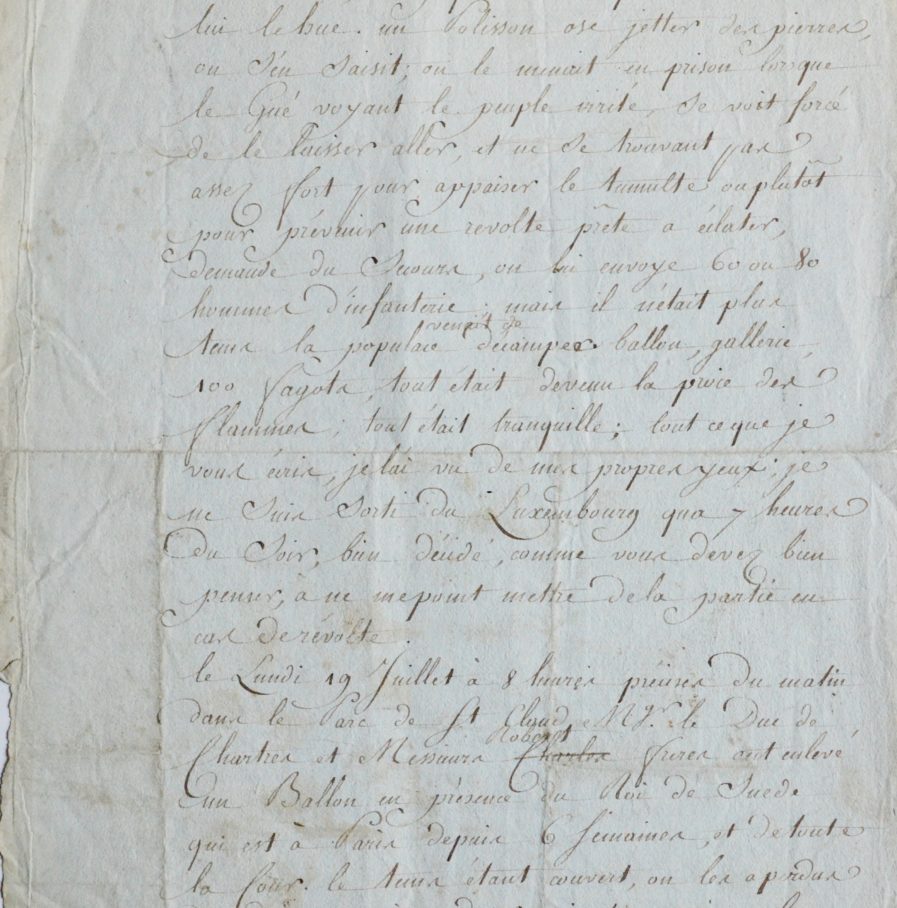 lui le hué. un Polisson ose jetter des pierres,
on s'en saisit, on le menoit en prison lorsque
le Gué voyant le peuple irrité, se voit forcé
de le laisser aller, et ne se trouvant pas
assez fort pour appaiser le tumulte ou plutôt
pour prévenir une revolte prête a éclater,
demande du secours, on lui envoye 60 ou 80
hommes d'infanterie; mais il n'était plus
tems la populace venait de décamper. ballon, gallerie,
100 fagots, tout était devenu la proie des
flammes; tout était tranquille; tout ce que je
vous écris, je l'ai vu de mes propres yeux; je
ne suis sorti du Luxembourg qua 7 heures
du soir, bien décidé, comme vous devez bien
penser, à ne me point mettre de la partie en
cas de révolte.
le Lundi 19 Juillet à 8 heures précises du matin
dans le Parc de St Cloud Mgr. le Duc de
Chartres et Messieurs Robert Charles freres ont enlevé
un Ballon en présence du Roi de Suede
qui est à Paris depuis 6 semaines, et de toute
la Cour. le tems étant couvert, on les a perdus